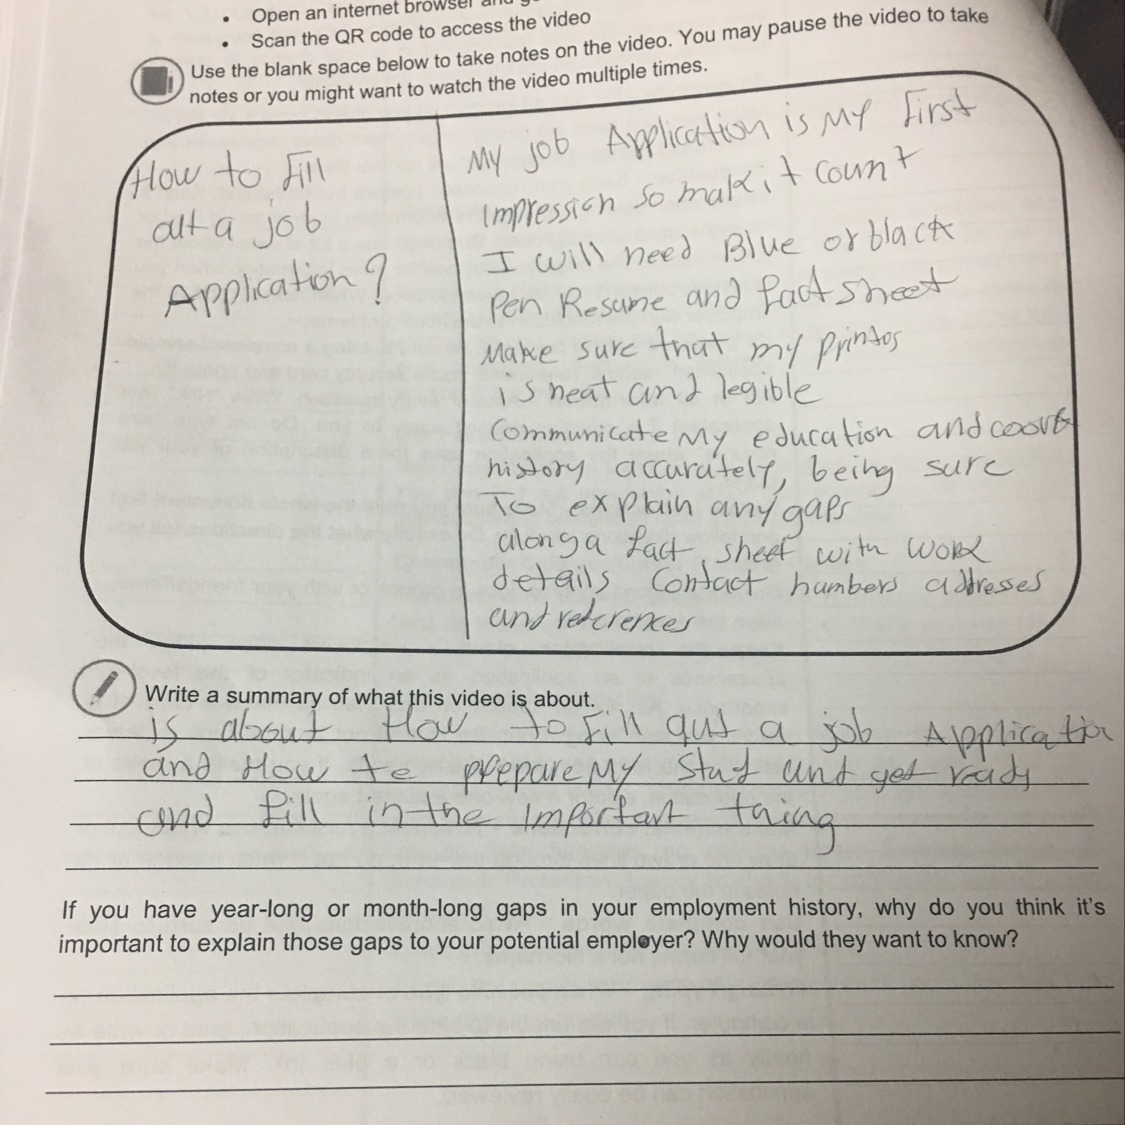 Open an internet browser and g
Scan the QR code to access the video
Use the blank space below to take notes on the video. You may pause the video to take
notes or you might want to watch the video multiple times.
How to fill
out a job
Application?
My job Application is my first
Impression so mak it count
I will need Blue or black
Pen Resume and fact sheet
Make sure that my
is neat and legible
Communicate My education and
history accurately, being sure
To explain any gaps
along a fact sheet with work
details Contact numbers addresses
and references
Write a summary of what this video is about.
is about How to fill out a job Application
and How to prepare My and get ready
and fill in the Important thing
If you have year-long or month-long gaps in your employment history, why do you think it's
important to explain those gaps to your potential employer? Why would they want to know?